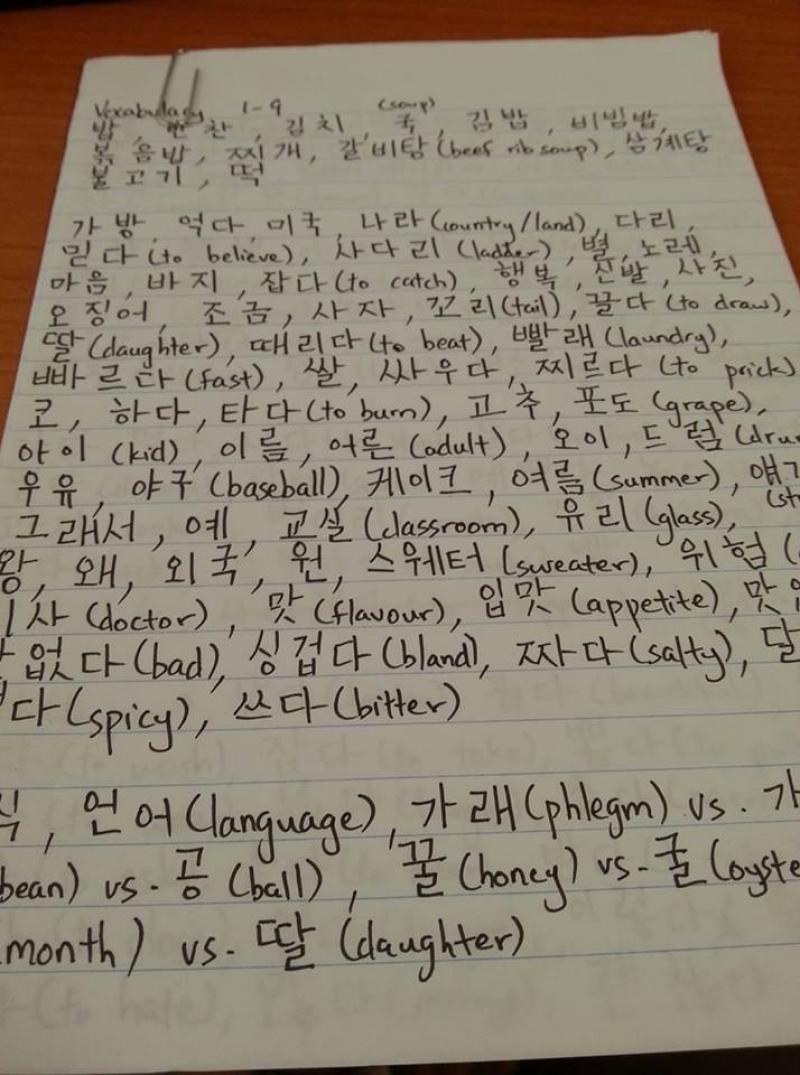 Vocabulary 1-9 (soup)
밥, 반찬, 김치, 국, 김밥, 비빔밥,
볶음밥, 찌개, 갈비탕 (beef rib soup), 삼계탕
불고기, 떡
가방, 먹다, 미국, 나라 (country/land), 다리,
믿다 (to believe), 사다리 (ladder), 별, 노레,
마음, 바지, 잡다 (to catch), 행복, 신발, 사진,
오징어, 조금, 사자, 꼬리 (tail), 끌다 (to draw),
딸 (daughter), 때리다 (to beat), 빨래 (laundry),
빠르다 (fast), 쌀, 싸우다, 찌르다 (to prick)
코, 하다, 타다 (to burn), 고추, 포도 (grape),
아이 (kid), 이름, 어른 (adult), 오이, 드럼
우유, 야구 (baseball), 케이크, 여름 (summer),
그래서, 예, 교실 (classroom), 유리 (glass),
왕, 왜, 외국, 원, 스웨터 (sweater), 위험
사 (doctor), 맛 (flavour), 입맛 (appetite), 맛
없다 (bad), 싱겁다 (bland), 짜다 (salty), 달
다 (spicy), 쓰다 (bitter)
식, 언어 (language), 가래 (phlegm) vs. 가
bean) vs. 공 (ball), 꿀 (honey) vs. 굴 (oyste
month) vs. 딸 (daughter)